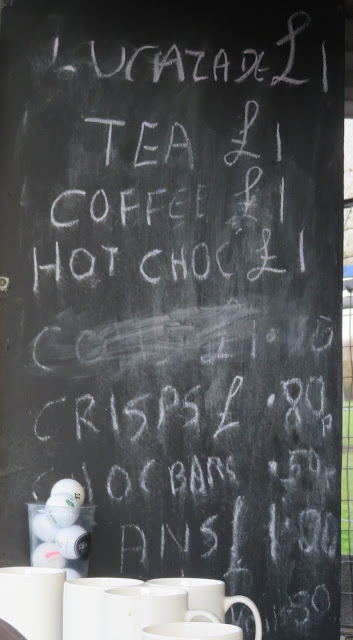 LUCAZADE £1
TEA £1
COFFEE £1
HOT CHOC £1
CRISPS £ .80p
CHOC BARS .50p
ANS £1.80
.30